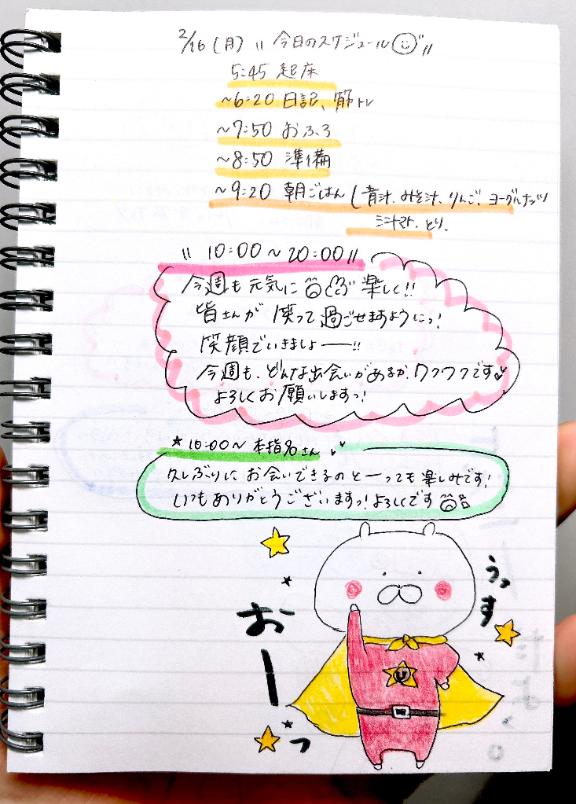 2/16(月) "今日のスケジュール"
5:45 起床
~6:20 日記、筋トレ
~7:50 おふろ
~8:50 準備
~9:20 朝ごはん(青汁、みそ汁、りんご、ヨーグルナッツ
ミニトマト、とり、
"10:00~20:00"
今週も元気に楽しく!!
皆さんが笑って過ごせますようにっ!
笑顔でいきましょー!!
今週も、どんな出会いがあるか、ワクワクです♡
よろしくお願いしますっ!
★10:00~ 本指名さん
久しぶりにお会いできるのとーっても楽しみです!
いつもありがとうございますっ!よろしくです
うっす
おーっ
U